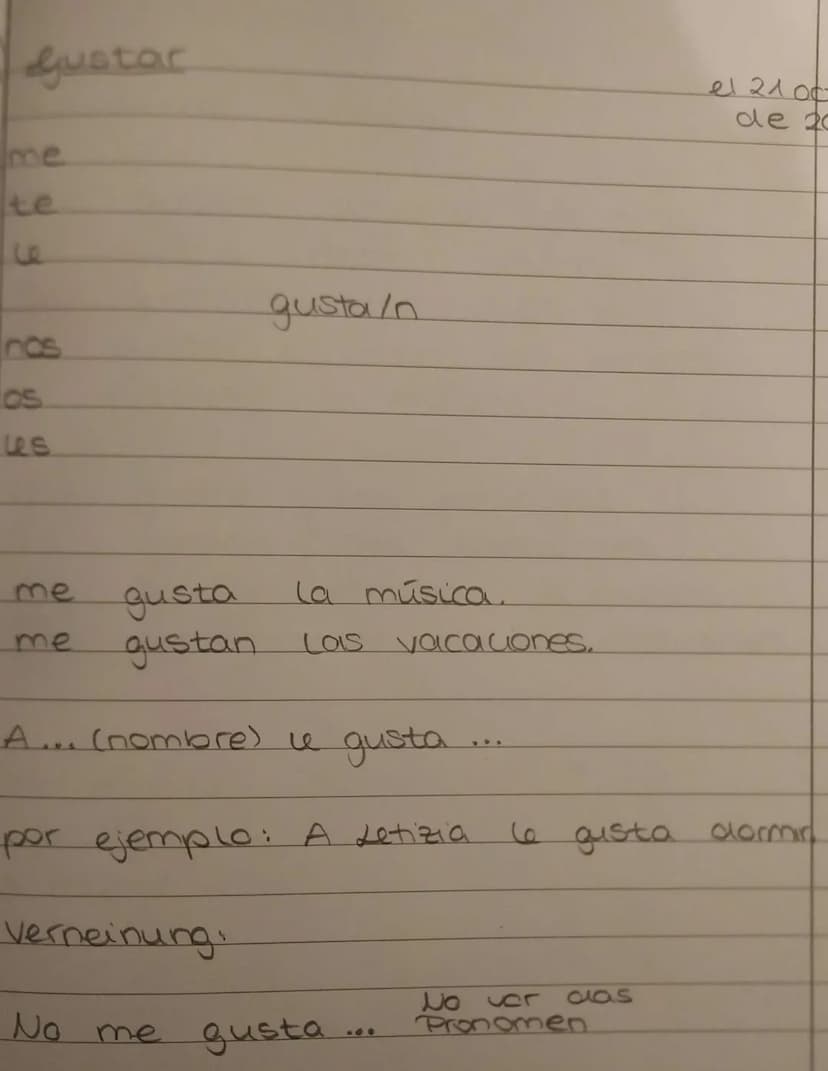 gustar
el 21 oct
de 20
me
te
le
gusta/n
nos
os
les
me gusta la música.
me gustan las vacaciones.
A... (nombre) le gusta ...
por ejemplo: A Letizia le gusta dormir
Verneinung:
No vor das
No me gusta ... Pronomen